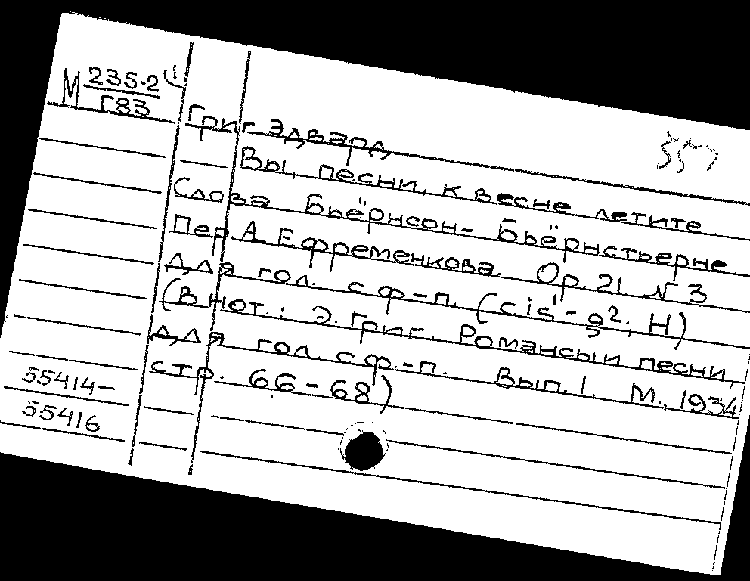 М 235-2
Г83
Григ Эдвард
Вы, песни, к весне летите
Слова Бьёрнсон-Бьёрнстьерне
Пер. А. Ефременкова Op. 21 N 3
для гол. с ф-п. (cis¹-g², H)
(В нот.: Э. Григ. Романсы и песни,
для гол. с ф-п. Вып. 1. М., 1934
стр. 66-68)
55414-
55416